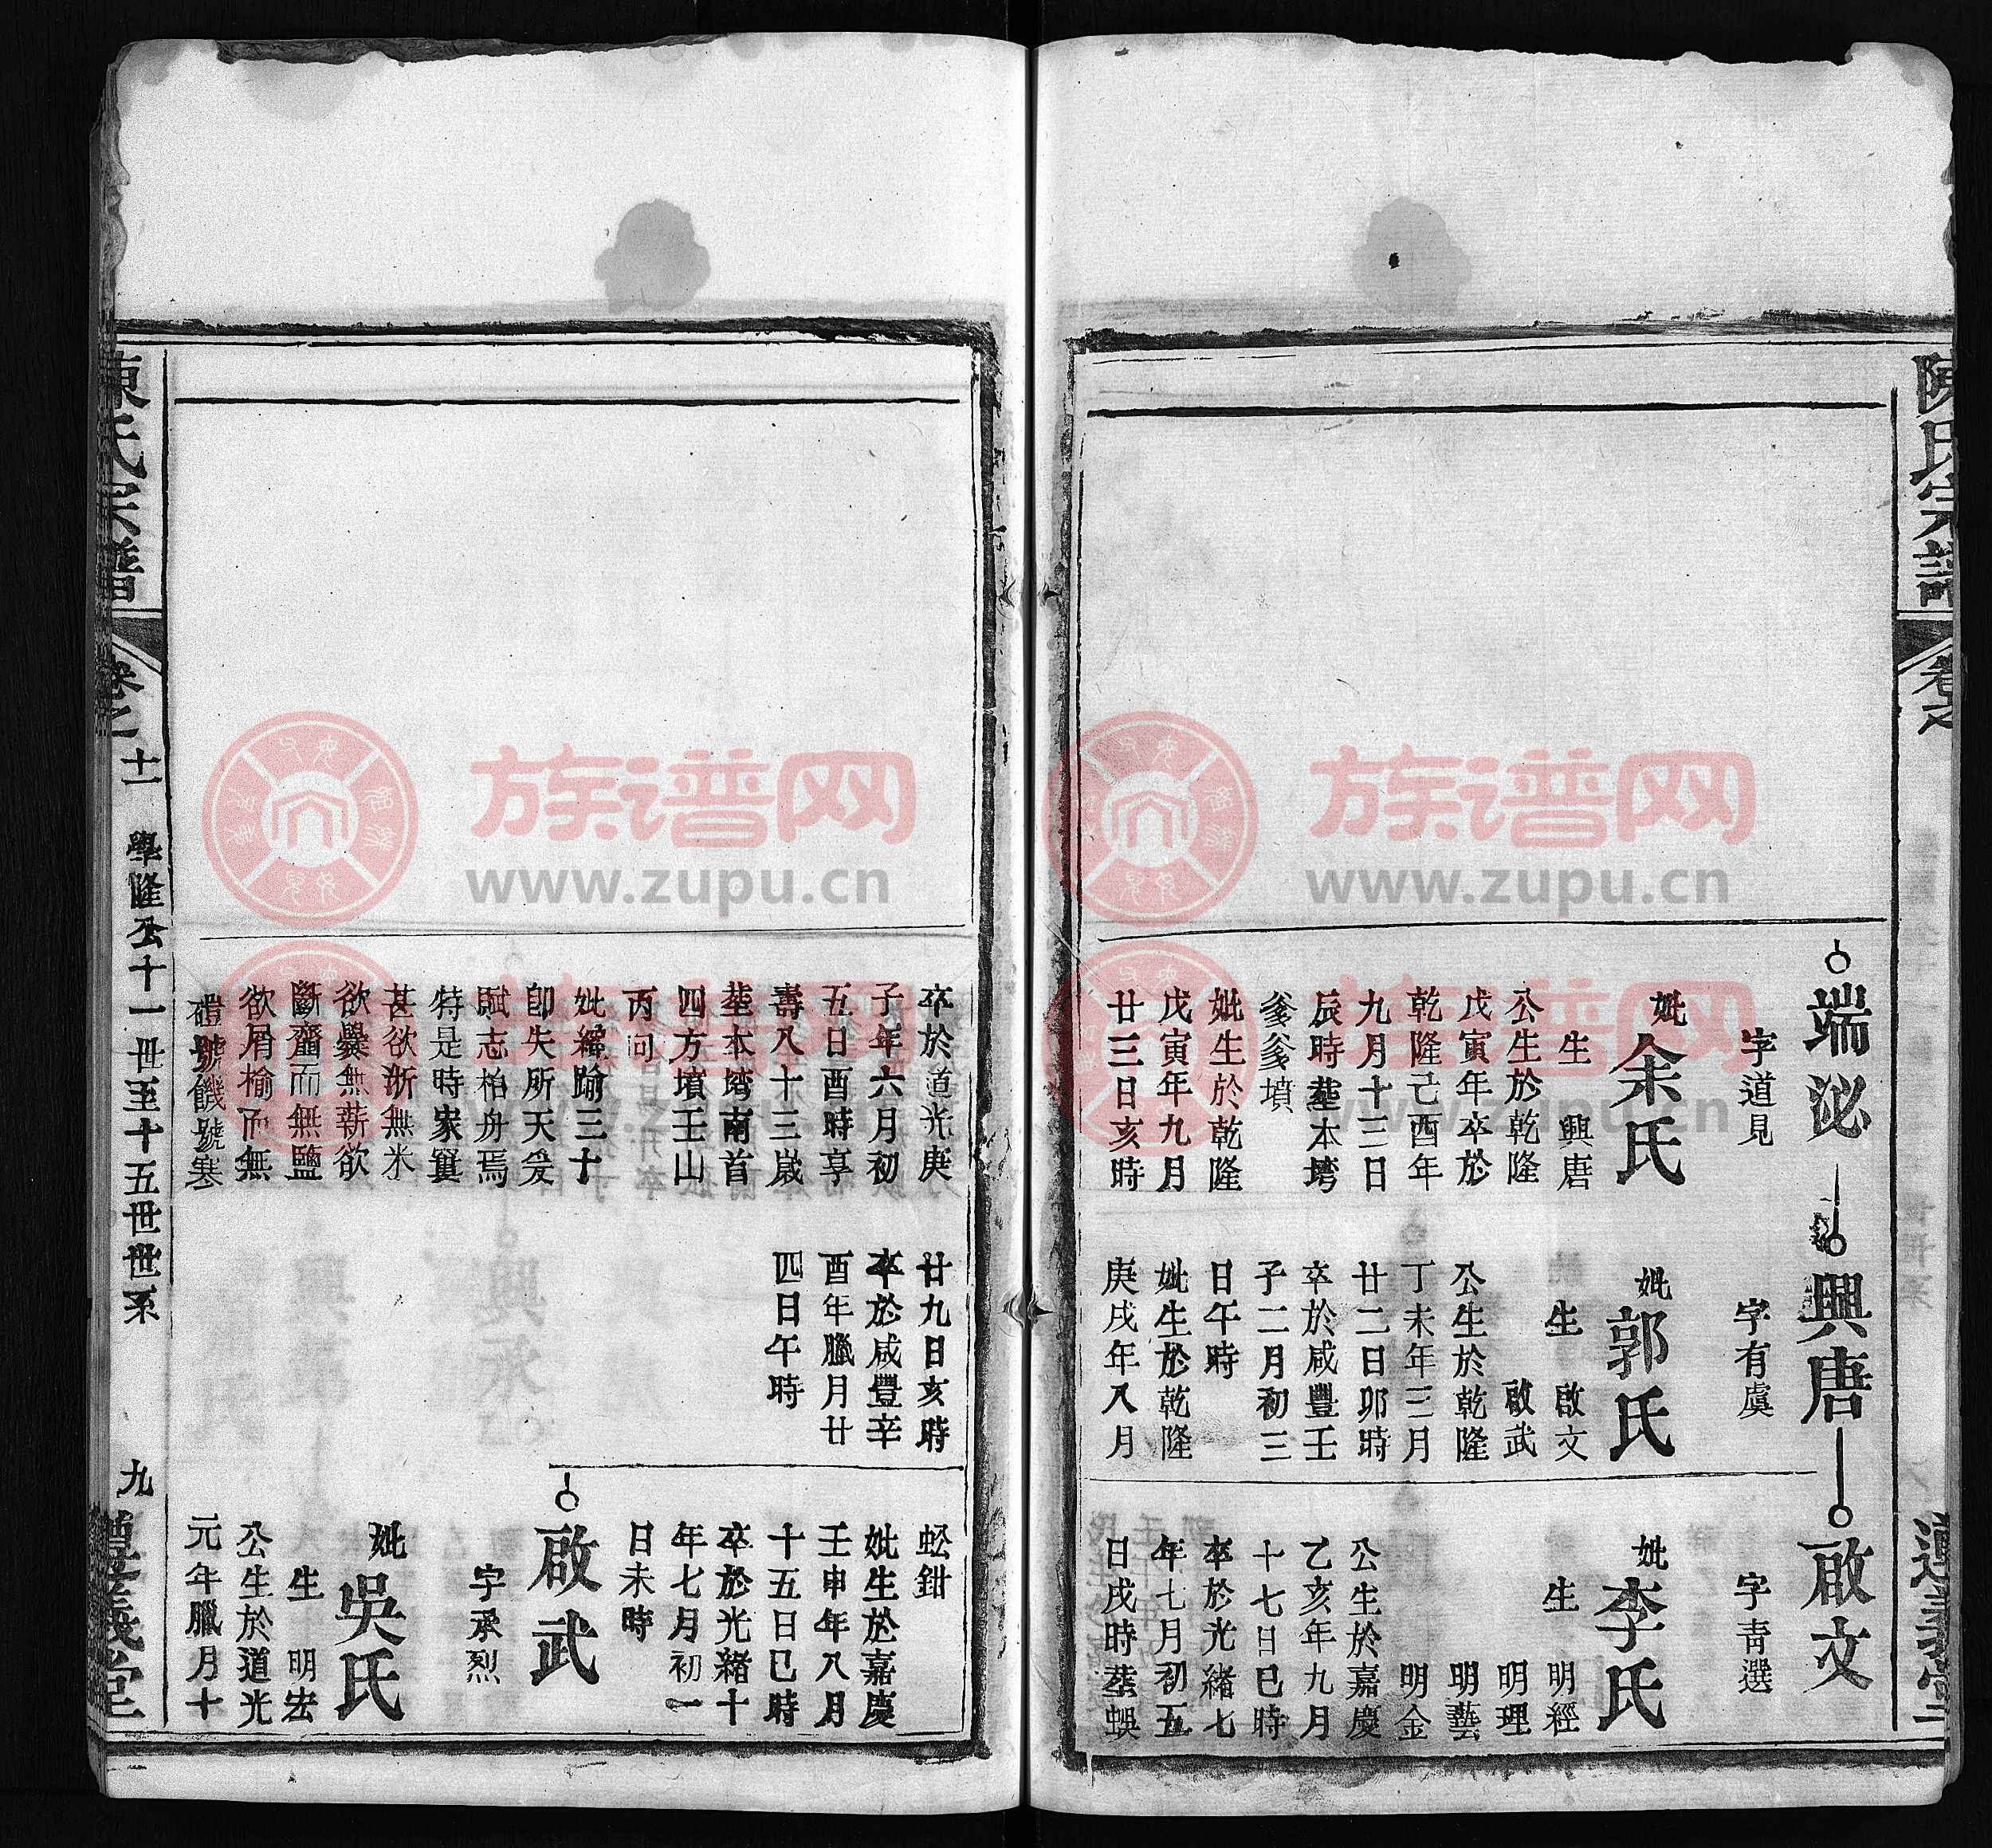 陳氏宗譜
卷之
端泌
字道見
妣余氏
生 興唐
公生於乾隆
戊寅年卒於
乾隆己酉年
九月十三日
辰時塟本塆
爹爹墳
妣生於乾隆
戊寅年九月
廿三日亥時
興唐
字有虞
妣郭氏
生 啟文
啟武
公生於乾隆
丁未年三月
廿二日卯時
卒於咸豐壬
子二月初三
日午時
妣生於乾隆
庚戌年八月
啟文
字青選
妣李氏
生 明經
明理
明藝
明金
公生於嘉慶
乙亥年九月
十七日巳時
卒於光緒七
年七月初五
日戌時塟蜈
卒於道光庚
子年六月初
五日酉時享
壽八十三歲
塟本塆南首
四方墳壬山
丙向
妣纔踰三十
卽失所天爰
賦志柏舟焉
特是時家窶
甚欲淅無米
欲爨無薪欲
斷虀而無鹽
欲屑榆而無
禮號饑號寒
廿九日亥時
卒於咸豐辛
酉年臘月廿
四日午時
蚣鉗
妣生於嘉慶
壬申年八月
十五日巳時
卒於光緒十
年七月初一
日未時
啟武
字承烈
妣吳氏
生 明宏
公生於道光
元年臘月十
陳氏宗譜
卷之十一
學隆公十一世至十五世世系
九
義堂
族谱网
www.zupu.cn
族谱网
www.zupu.cn